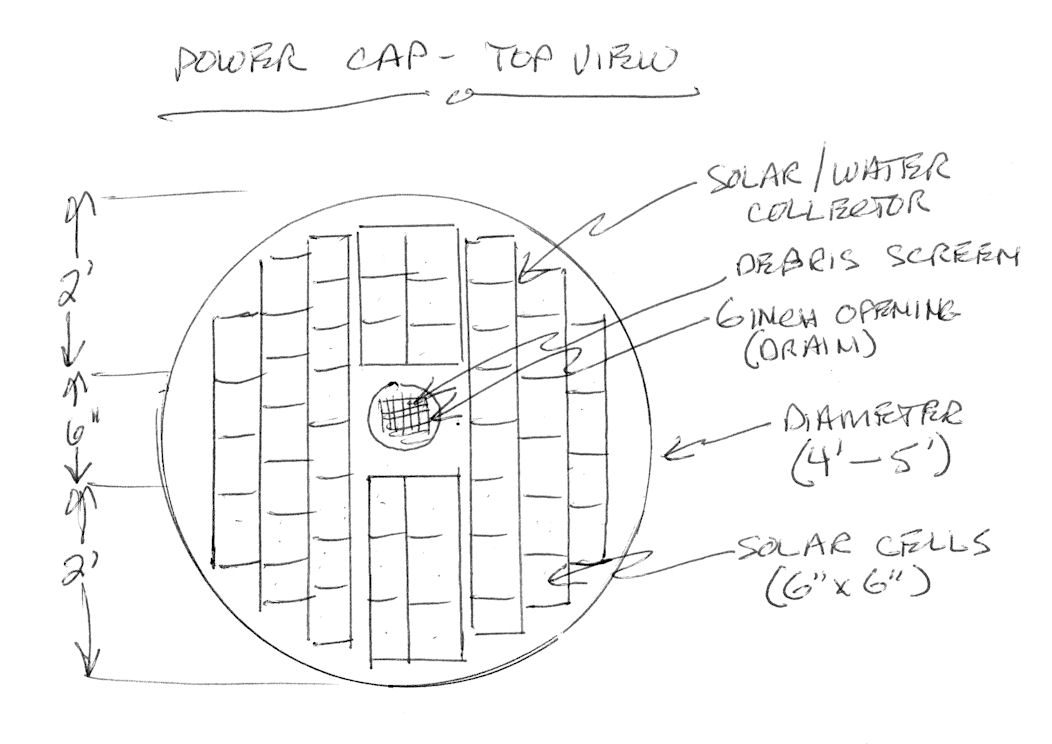 POWER CAP - TOP VIEW
SOLAR/WATER
COLLECTOR
DEBRIS SCREEN
6 INCH OPENING
(DRAIN)
DIAMETER
(4'-5')
SOLAR CELLS
(6"x6")
2'
6"
2'